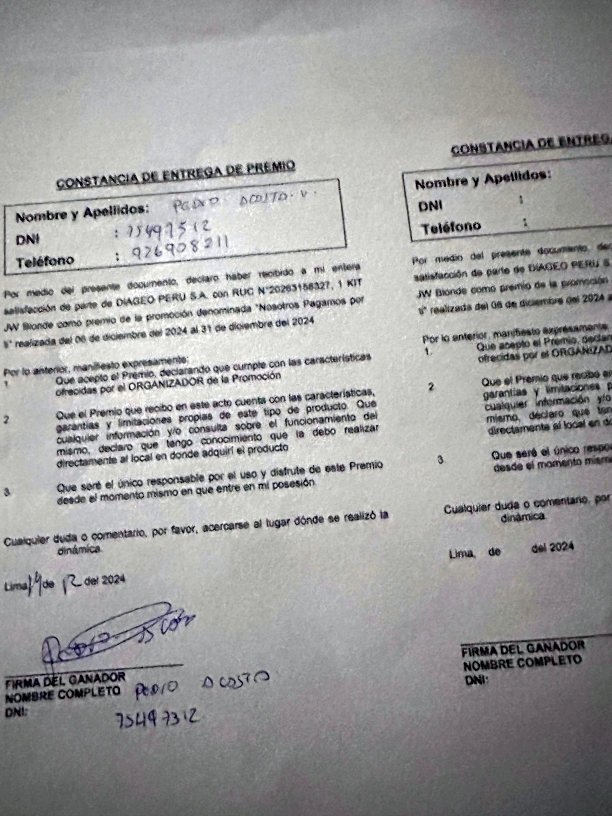 CONSTANCIA DE ENTREGA DE PREMIO
Nombre y Apellidos: PEDRO ACOSTA V.
DNI : 75497312
Teléfono : 926908211
Por medio del presente documento, declaro haber recibido a mi entera
satisfacción de parte de DIAGEO PERU S.A. con RUC N°20263188327, 1 KIT
JW Blonde como premio de la promoción denominada "Nosotros Pagamos por
ti" realizada del 06 de diciembre del 2024 al 31 de diciembre del 2024
Por lo anterior, manifiesto expresamente:
1. Que acepto el Premio, declarando que cumple con las características
ofrecidas por el ORGANIZADOR de la Promoción
2 Que el Premio que recibo en este acto cuenta con las características,
garantías y limitaciones propias de este tipo de producto. Que
cualquier información y/o consulta sobre el funcionamiento del
mismo, declaro que tengo conocimiento que la debo realizar
directamente al local en donde adquirí el producto
3. Que seré el único responsable por el uso y disfrute de este Premio
desde el momento mismo en que entre en mi posesión
Cualquier duda o comentario, por favor, acercarse al lugar dónde se realizó la
dinámica.
Lima 14 de 12 del 2024
Pedro Acosta
FIRMA DEL GANADOR
NOMBRE COMPLETO PEDRO ACOSTA
DNI: 75497312
CONSTANCIA DE ENTREGA
Nombre y Apellidos:
DNI :
Teléfono :
Por medio del presente documento,
satisfacción de parte de DIAGEO PERU S
JW Blonde como premio de la promoción
realizada del 06 de diciembre del 2024
Por lo anterior, manifiesto expresamente:
1. Que acepto el Premio,
ofrecidas por el
2 Que el Premio que recibo
garantías y limitaciones
cualquier información y/o
mismo, declaro que
directamente al local en
3. Que seré el único
desde el momento
Cualquier duda o comentario, por favor, por
dinámica.
Lima, de del 2024
FIRMA DEL GANADOR
NOMBRE COMPLETO
DNI: